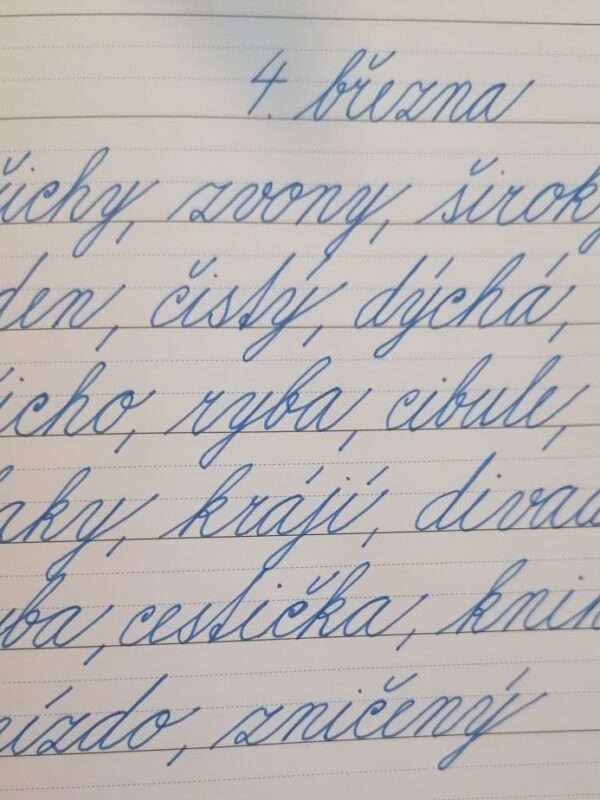 4. března
zvony, široky
den, čistý, dýchá,
icho, ryba, cibule,
aky, krájí, divad
ba, cestička, knih
nízdo, zničený